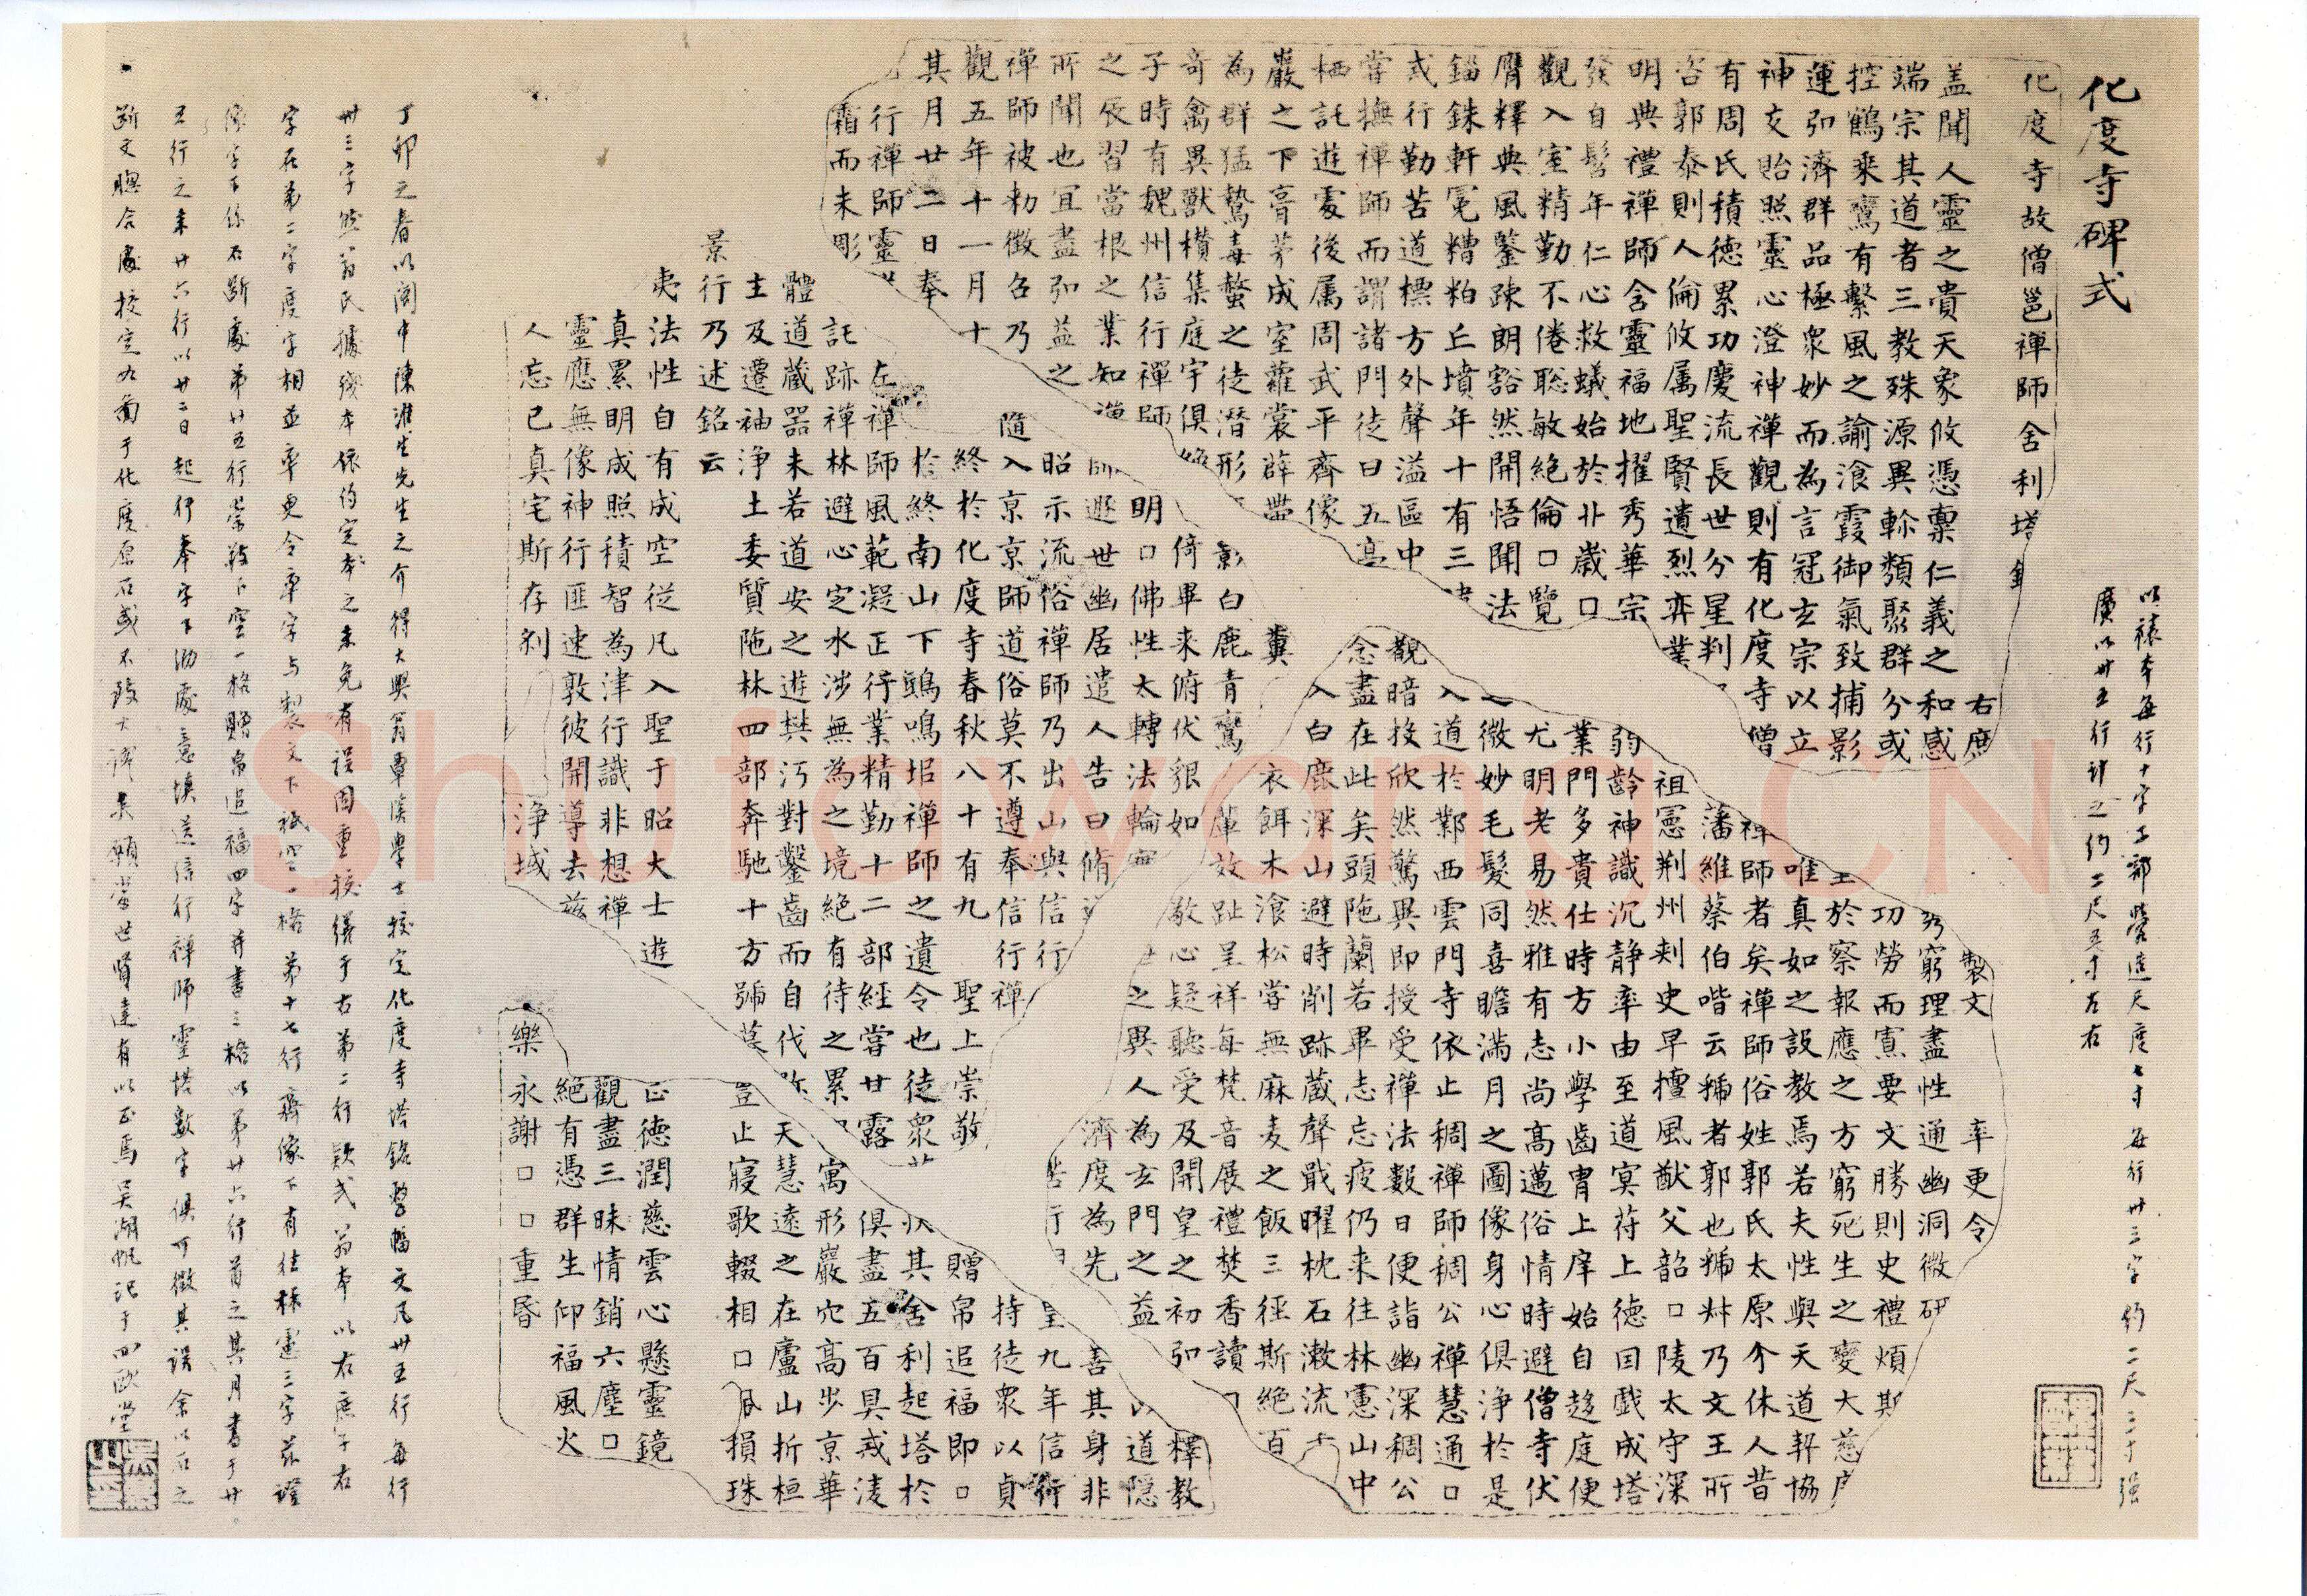 化度寺碑式
以裱本每行十字工部營造尺度七寸每行卅三字約二尺三寸强
廣以卅五行計之約二尺五寸左右
化度寺故僧邕禪師舍利塔
右庶 製文 率更令
盖聞人靈之貴天象攸憑稟仁義之和感 窮理盡性通幽洞微研
端宗其道者三教殊源異軫類聚群分或 功勞而寡要文勝則史禮煩斯
控鶴来鸞有繫風之諭飡霞御氣致捕影 於察報應之方窮死生之變大慈
運弘濟群品極衆妙而為言冠玄宗以立 唯真如之設教焉若夫性與天道契協
神交貽照靈心澄神禪觀則有化度寺僧 禪師者矣禪師俗姓郭氏太原介休人昔
有周氏積德累功慶流長世分星判 藩維蔡伯喈云虢者郭也虢叔乃文王所
咨郭泰則人倫攸属聖賢遺烈弈業 祖憲荆州刾史早擅風猷父韶□陵太守深
明典禮禪師含靈福地擢秀華宗 弱齡神識沉静率由至道冥苻上德囙戲成塔
發自髫年仁心救蟻始於丱歲□ 業門多貴仕時方小學齒胄上庠始自趍庭便
觀入室精勤不倦聡敏絕倫□覽 尤明老易然雅有志尚高邁俗情時避僧寺伏
膺釋典風鑒踈朗豁然開悟聞法 微妙毛髮同喜瞻滿月之圖像身心俱淨於是
錙銖軒冕糟粕丘墳年十有三 入道於鄴西雲門寺依止稠禪師稠公禪慧通□
式行勤苦道標方外聲溢區中 覩暗投欣然驚異即授受禪法數日便詣幽深稠公
嘗撫禪師而謂諸門徒曰五 念盡在此矣頭陁蘭若畢志忘疲仍来往林慮山中
栖託遊處後属周武平齊像 入白鹿深山避時削跡藏聲戢曜枕石漱流
巖之下膏茅成室蘿裳薜 糞衣餌木飡松嘗無麻麦之飯三徑斯絕百
為群猛鷙毒螫之徒潛形 彰白鹿青鸞 效趾呈祥每梵音展禮焚香讀
奇禽異獸櫕集庭宇俱 倚畢来俯伏貌如敬心疑聽受及開皇之初弘釋教
子時有魏州信行禪師明□佛性太轉法輪 之異人為玄門之益 道隱
之辰習當根之業知 師遯世幽居遣人告曰脩 濟度為先 善其身非
所聞也宜盡弘益之 昭示流俗禪師乃出山與信行 苦行 九年信行
禪師被勑徵召乃 隨入京京師道俗莫不遵奉信行禪 持徒衆以貞
觀五年十一月十 終於化度寺春秋八十有九 聖上崇敬 贈帛追福即□
其月廿二日奉 於終南山下鴟鳴堆禪師之遺令也徒衆 其舍利起塔於
行禪師靈 左禪師風範凝正行業精勤十二部經嘗甘露 俱盡五百具戒淩
霜而未彫 託跡禪林避心定水涉無為之境絕有待之累 寓形巖穴高步京華
體道藏器未若道安之遊樊沔對鑿齒而自伐 天慧遠之在廬山折桓
主及遷袖淨土委質陁林四部奔馳十方號 豈止寢歌輟相□ 損珠
景行乃述銘云
夷法性自有成空従凡入聖于昭大士遊 正德潤慈雲心懸靈鏡
真累明成照積智為津行識非想禪 觀盡三昧情銷六塵□
靈應無像神行匪速敦彼開導去兹 絕有憑群生仰福風火
人忘已真宅斯存刹 淨域 樂永謝□□重昏
丁卯之春以閩中陳淮生先生之介得大興翁覃溪學士校定化度寺塔銘整幅文凡卅五行每行
卅三字然翁氏據殘本依約定本之未免有誤因重校繕于右第二行款式翁本以右庶子右
字在第二字度字相並率更令率字与製文下祇空一格第十七行齊像下有往林慮三字茲證
像字下係石斷處第廿五行崇敬下空一格贈帛追福四字并書三格以第廿六行首之其月書于廿
五行之末廿六行以廿二日起行奉字下泐處意填送信行禪師靈塔數字俱可徵其誤余以石之
斷文脗合處校定九葡于化度原石或不致大謬矣願當世賢達有以正焉吴湖帆記于四歐堂
ShufaWang.CN